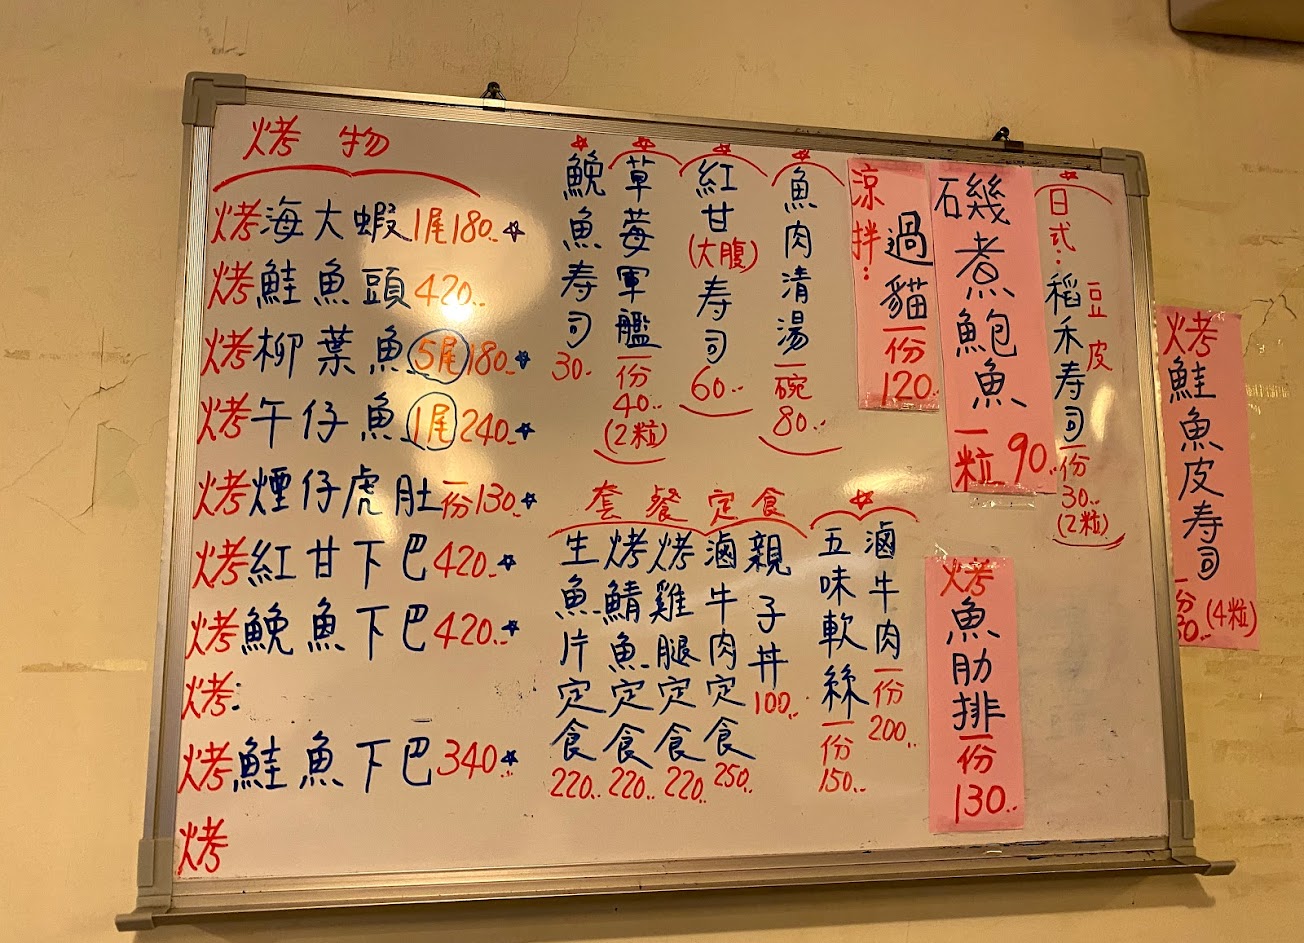 烤物
烤海大蝦1尾180..
烤鮭魚頭420..
烤柳葉魚5尾180..
烤午仔魚1尾240..
烤煙仔虎肚一份130..
烤紅甘下巴420..
烤鮸魚下巴420..
烤:
烤鮭魚下巴340..
烤
鮸魚寿司30..
草莓軍艦一份40..(2粒)
紅甘(大腹)寿司60..
魚肉清湯一碗80..
涼拌:過貓一份120..
磯煮鮑魚一粒90..
日式:豆皮
稻禾寿司一份30..(2粒)
烤鮭魚皮寿司
(4粒)
套餐定食
生魚片定食220..
烤鯖魚定食220..
烤雞腿定食220..
滷牛肉定食250..
親子丼100..
五味軟絲一份150..
滷牛肉一份200..
烤魚肋排一份130..